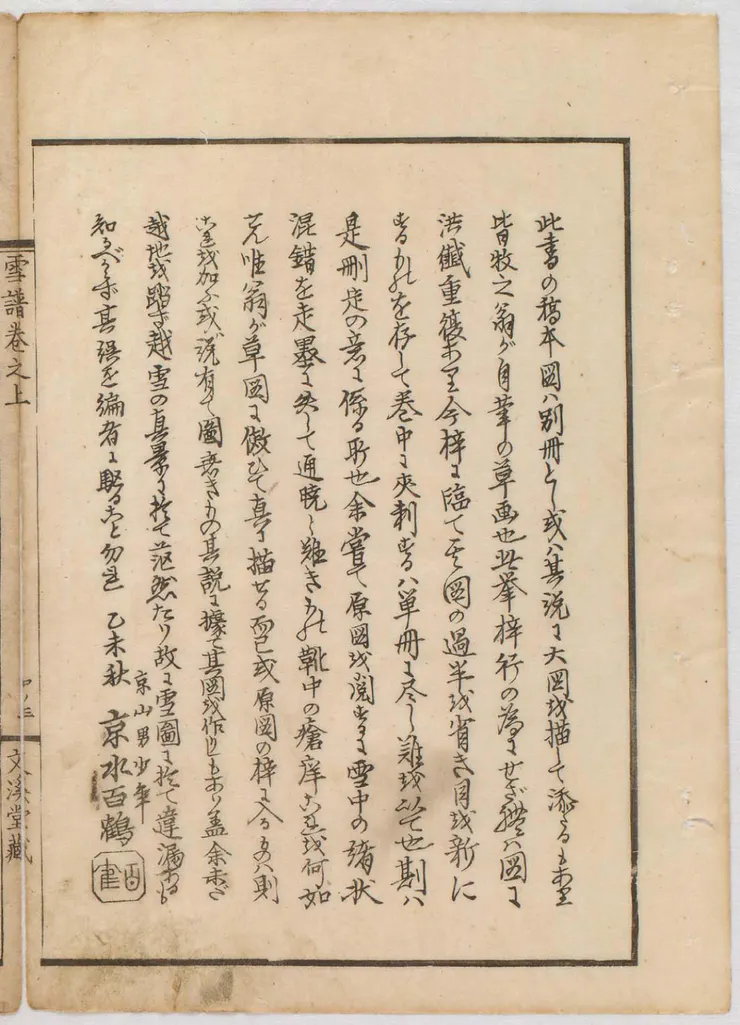 此書の稿本図ハ別冊とし或ハ其説に大図を描して添たるもあり
皆牧之翁が自筆の草画也此挙梓行の為にせざれバ図に
洪繊重複あり今梓に臨て其図の過半を省き目を新に
するものを存して巻中に夾刺するハ単冊に尽し難を以て也斯ハ
是刪定の意に係る所也余嘗て原図を閲するに雪中の諸状
混錯を走墨に失して通暁し難きもの靴中の瘡痒これを何如
せん唯翁が草図に倣ひて真に描せる而已或原図の梓に入るものハ則
これを加ふ或ハ説有て図无きもの其説に據て其図を作りしもあり蓋余未だ
越地を踏ず越雪の真景に於て茫然たり故に雪図に於て違漏あるも
知るべからず其誤を編者に駁ること勿れ 乙未秋
京山男少年
京水百鶴
百隺
雪譜巻之上
文溪堂藏